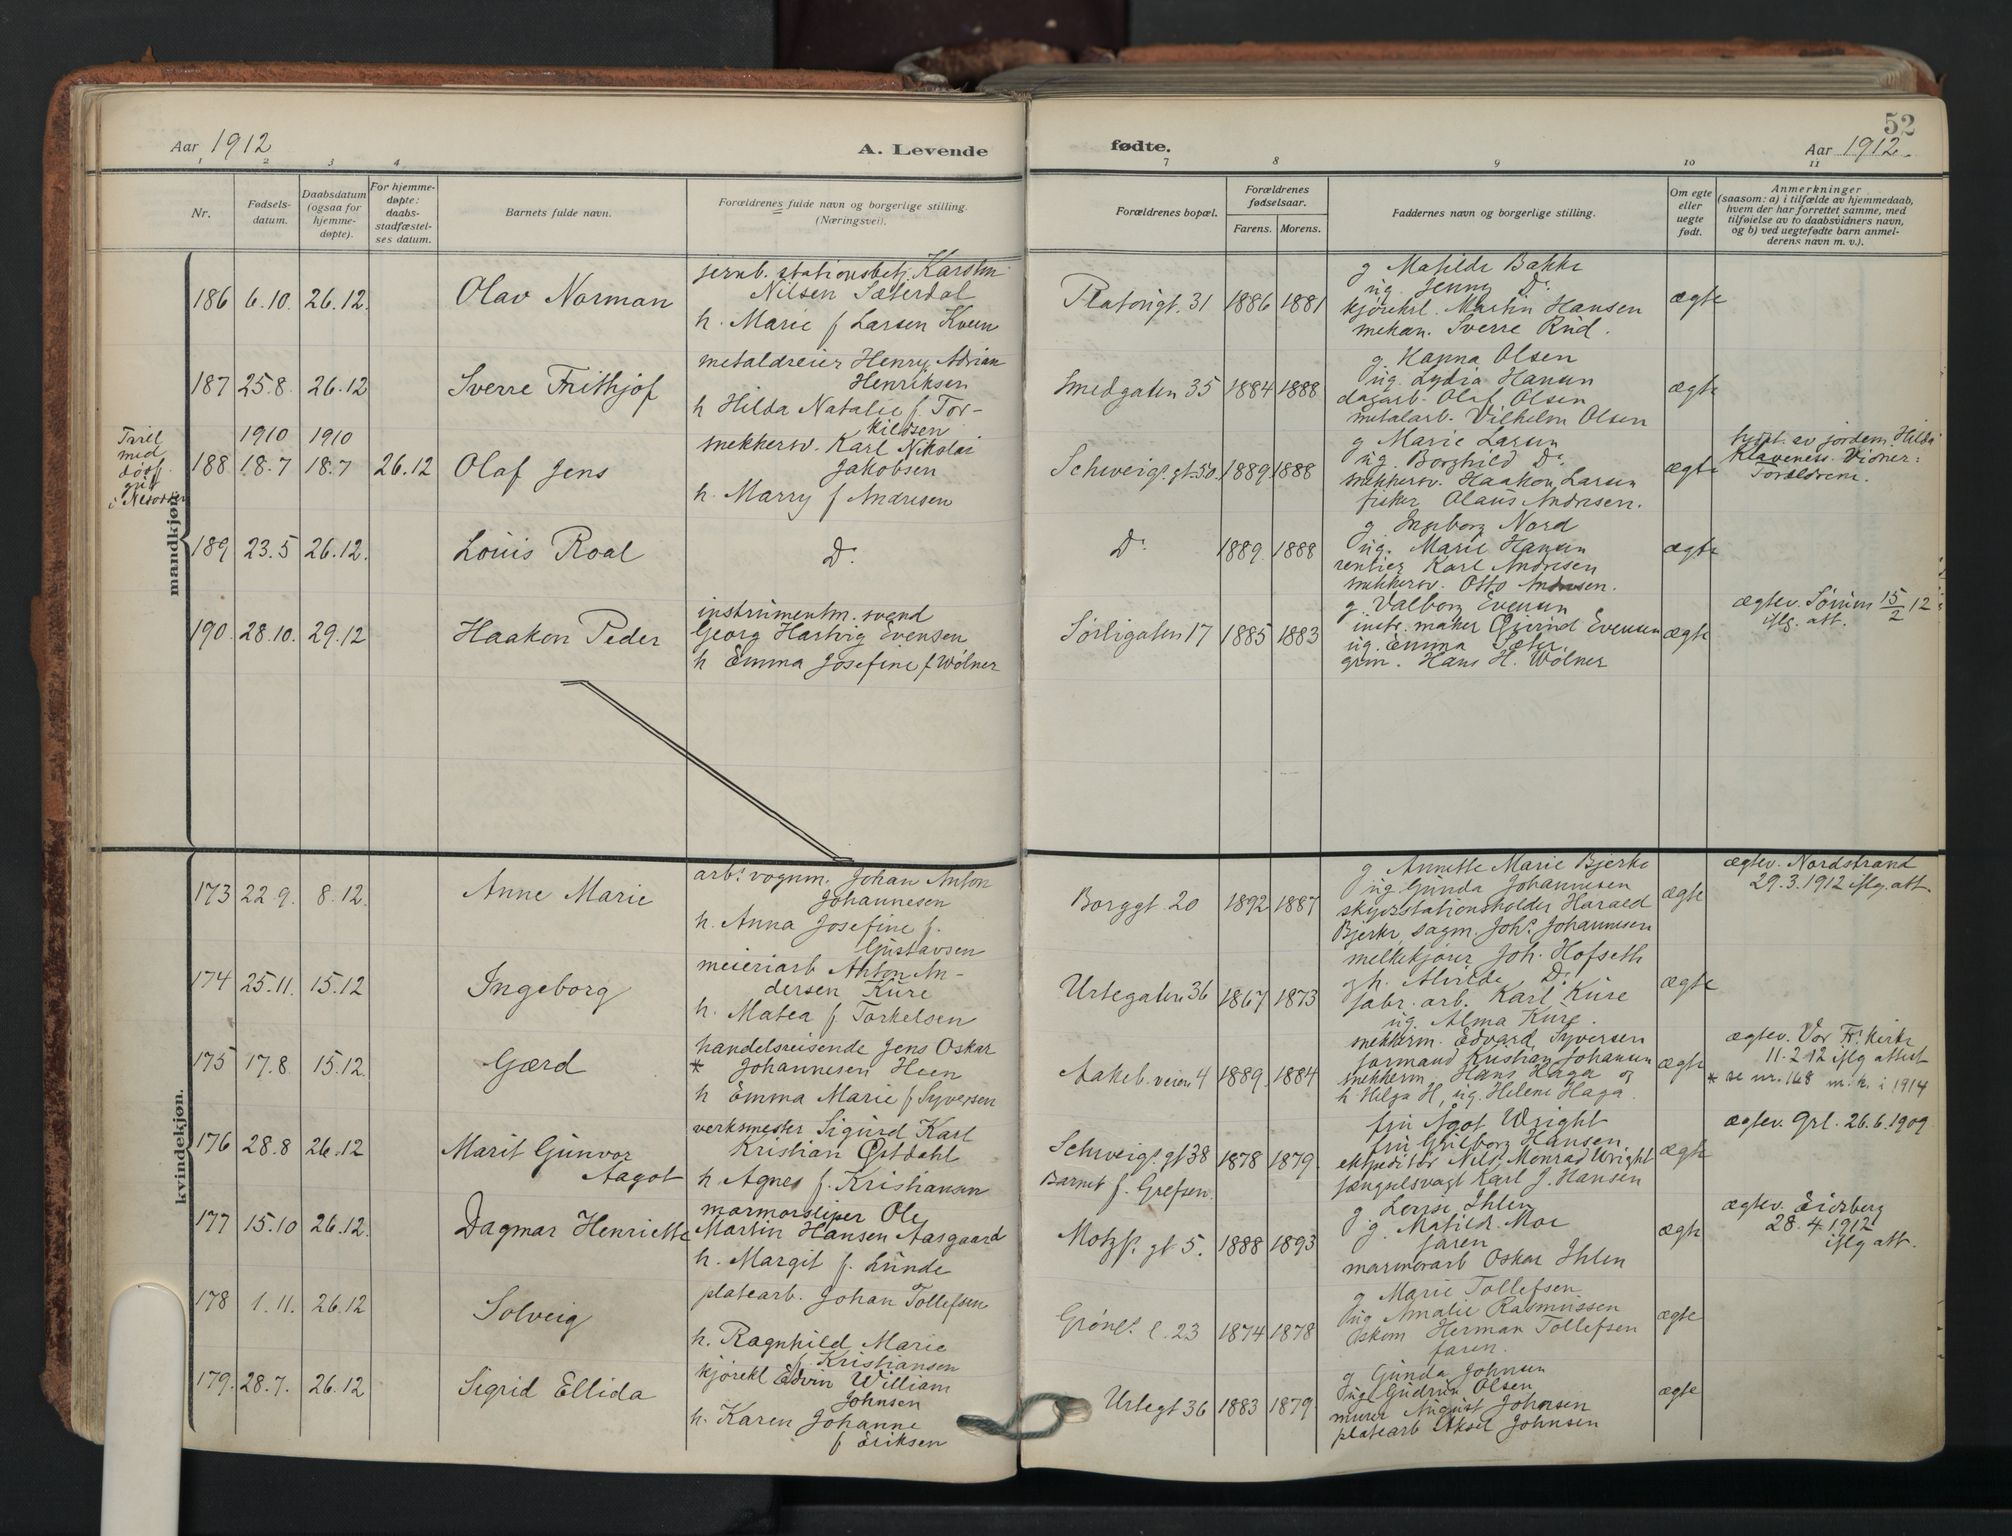 52
Aar 1912
A. Levende fødte.
Aar 1912.
1 2 3 4 7 8 9 10 11
Nr.
Fødsels-
datum.
Daabsdatum
(ogsaa for
hjemme-
døpte).
For hjemme-
døpte:
daabs-
stadfæstel-
ses datum.
Barnets fulde navn.
Forældrenes fulde navn og borgerlige stilling.
(Næringsvei).
Forældrenes bopæl.
Forældrenes
fødselsaar.
Farens. Morens.
Faddernes navn og borgerlige stilling.
Om egte
eller
uegte
født.
Anmerkninger
(saasom: a) i tilfælde av hjemmedaab,
hvem der har forrettet samme, med
tilføielse av to daabsvidners navn,
og b) ved uegtefødte barn anmel-
derens navn m. v.).
mandkjøn.
186 6.10. 26.12. Olav Norman
jernb. stationsbetj. Karsten
Nilsen Sæterdal
h. Marie f Larsen Kveen
Platougt. 31 1886 1881
g Matilde Bakke
ug. Jenny Do
kjørekrl. Martin Hansen
mekan. Sverre Rud.
ægte
187 25.8. 26.12 Sverre Frithjof
metaldreier Henry Adrian
Henriksen
h Hilda Natalie f. Tor-
kildsen
Smedgaten 35 1884 1888
g. Hanna Olsen
ug. Lydia Hansen
dagarb. Olaf Olsen
metalarb. Vilhelm Olsen
ægte
med
i Nesodden
1910 1910
188 18.7 18.7 26.12 Olaf Jens
snekkersv. Karl Nikolai
Jakobsen
h. Marry f Andresen
Schweigs. gt. 50. 1889. 1888
g Marie Larsen
ug. Borghild Do
snekkersv. Haakon Larsen
fisker Olaus Andresen.
ægte
hjdt. av jordem. Hilda
Klaveness. Vidner:
Forældrene.
189 23.5 26.12. Louis Roal
Do
Do 1889. 1888
g. Ingeborg Nord
ug. Marie Hansen
rentier Karl Andresen
snekkersv. Otto Andresen.
ægte
190. 28.10. 29.12 Haakon Peder
instrumentm. svend
Georg Hartvig Evensen
h Emma Josefine f Wølner
Sørligaten 17 1885 1883
g. Valborg Evensen
instr. maker Øivind Evensen
ug. Emma Sæter.
grm. Hans H. Wølner
ægte
ægtev. Sørum 15/2 12
iflg. att.
kvindekjøn.
173 22.9. 8.12. Anne Marie
arb. vognm. Johan Anton
Johannesen
h. Anna Josefine f.
Gustavsen
Borggt. 20 1892. 1887
g Annette Marie Bjerke
ug Gunda Johannesen
skydsstationsholder Harald
Bjerke, sagm. Johs. Johannesen
ægte
ægtev. Nordstrand
29.3.1912 iflg. att.
174 25.11. 15.12 Ingeborg
meieriarb Anton An-
dersen Kure
h. Matea f Torkelsen
Urtegaten 36 1867 1873
melkekjører Joh. Hofseth
og h. Alvilde Do
fabr. arb. Karl Kure
ug. Alma Kure
ægte
175 17.8. 15.12. Gærd
handelsreisende Jens Oskar
* Johannesen Heen
h Emma Marie f Syversen
Aakeb. veien 4 1889. 1884
snekkerm. Edvard Syversen
formand Kristian Johansen
snekkerm Hans Haga og
h Helga H, ug. Helene Haga.
ægte
ægtev. Vor Fr. Kirke
11.2.12 iflg attest
* se nr. 168 m. k. i 1914
176 28.8 26.12 Marit Gunvor
Aagot
verksmester Sigurd Karl
Kristian Østdahl
h Agnes f. Kristiansen
Schweigs. gt 38 1878 1879.
Barnet f. Grefsen.
fru Agot Wright
fru Gulborg Hansen.
ekspeditør Nils Monrad Wright
fængselsvagt Karl J. Hansen
ægte
ægtev. Grl. 26.6.1909
177 15.10 26.12. Dagmar Henriette
marmorsliper Ole
Martin Hansen Aasgaard
h. Margit f. Lunde
Motzf. gt 5. 1888 1893
g Lovise Ihlen
g. Matild. Moe
faren
marmorarb Oskar Ihlen
ægte
ægtev. Eidsberg
28.4.1912
iflg att.
178 1.11. 26.12 Solveig
platearb. Johan Tollefsen
h. Ragnhild Marie
f. Kristiansen
Grønl. l. 23 1874 1878
g Marie Tollefsen
ug Amalie Rasmussen
Oskem Herman Tollefsen
faren.
ægte
179. 28.7. 26.12 Sigrid Ellida
kjørekl Edvin William
Johnsen
h. Karen Johanne
f Eriksen
Urtegt 36 1883 1879
g Gunda Johnsen
ug. Gudrun Olsen
murer August Johnsen
platearb Aksel Johnsen
ægte